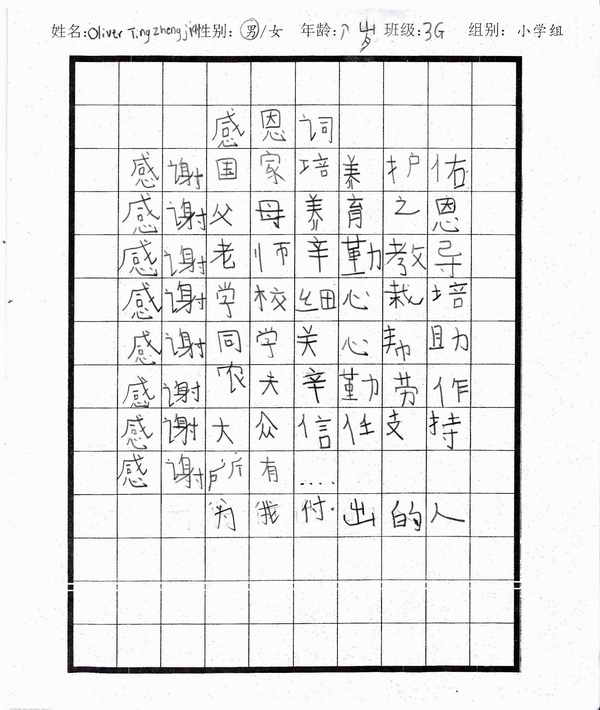 姓名:Oliver Tingzhengji 性别: 男/女 年龄: 岁 班级:3G 组别: 小学组
感恩词
感谢国家培养护佑
感谢父母养育之恩
感谢老师辛勤教导
感谢学校细心栽培
感谢同学关心帮助
感谢农夫辛勤劳作
感谢大众信任支持
感谢所有....
为我付出的人